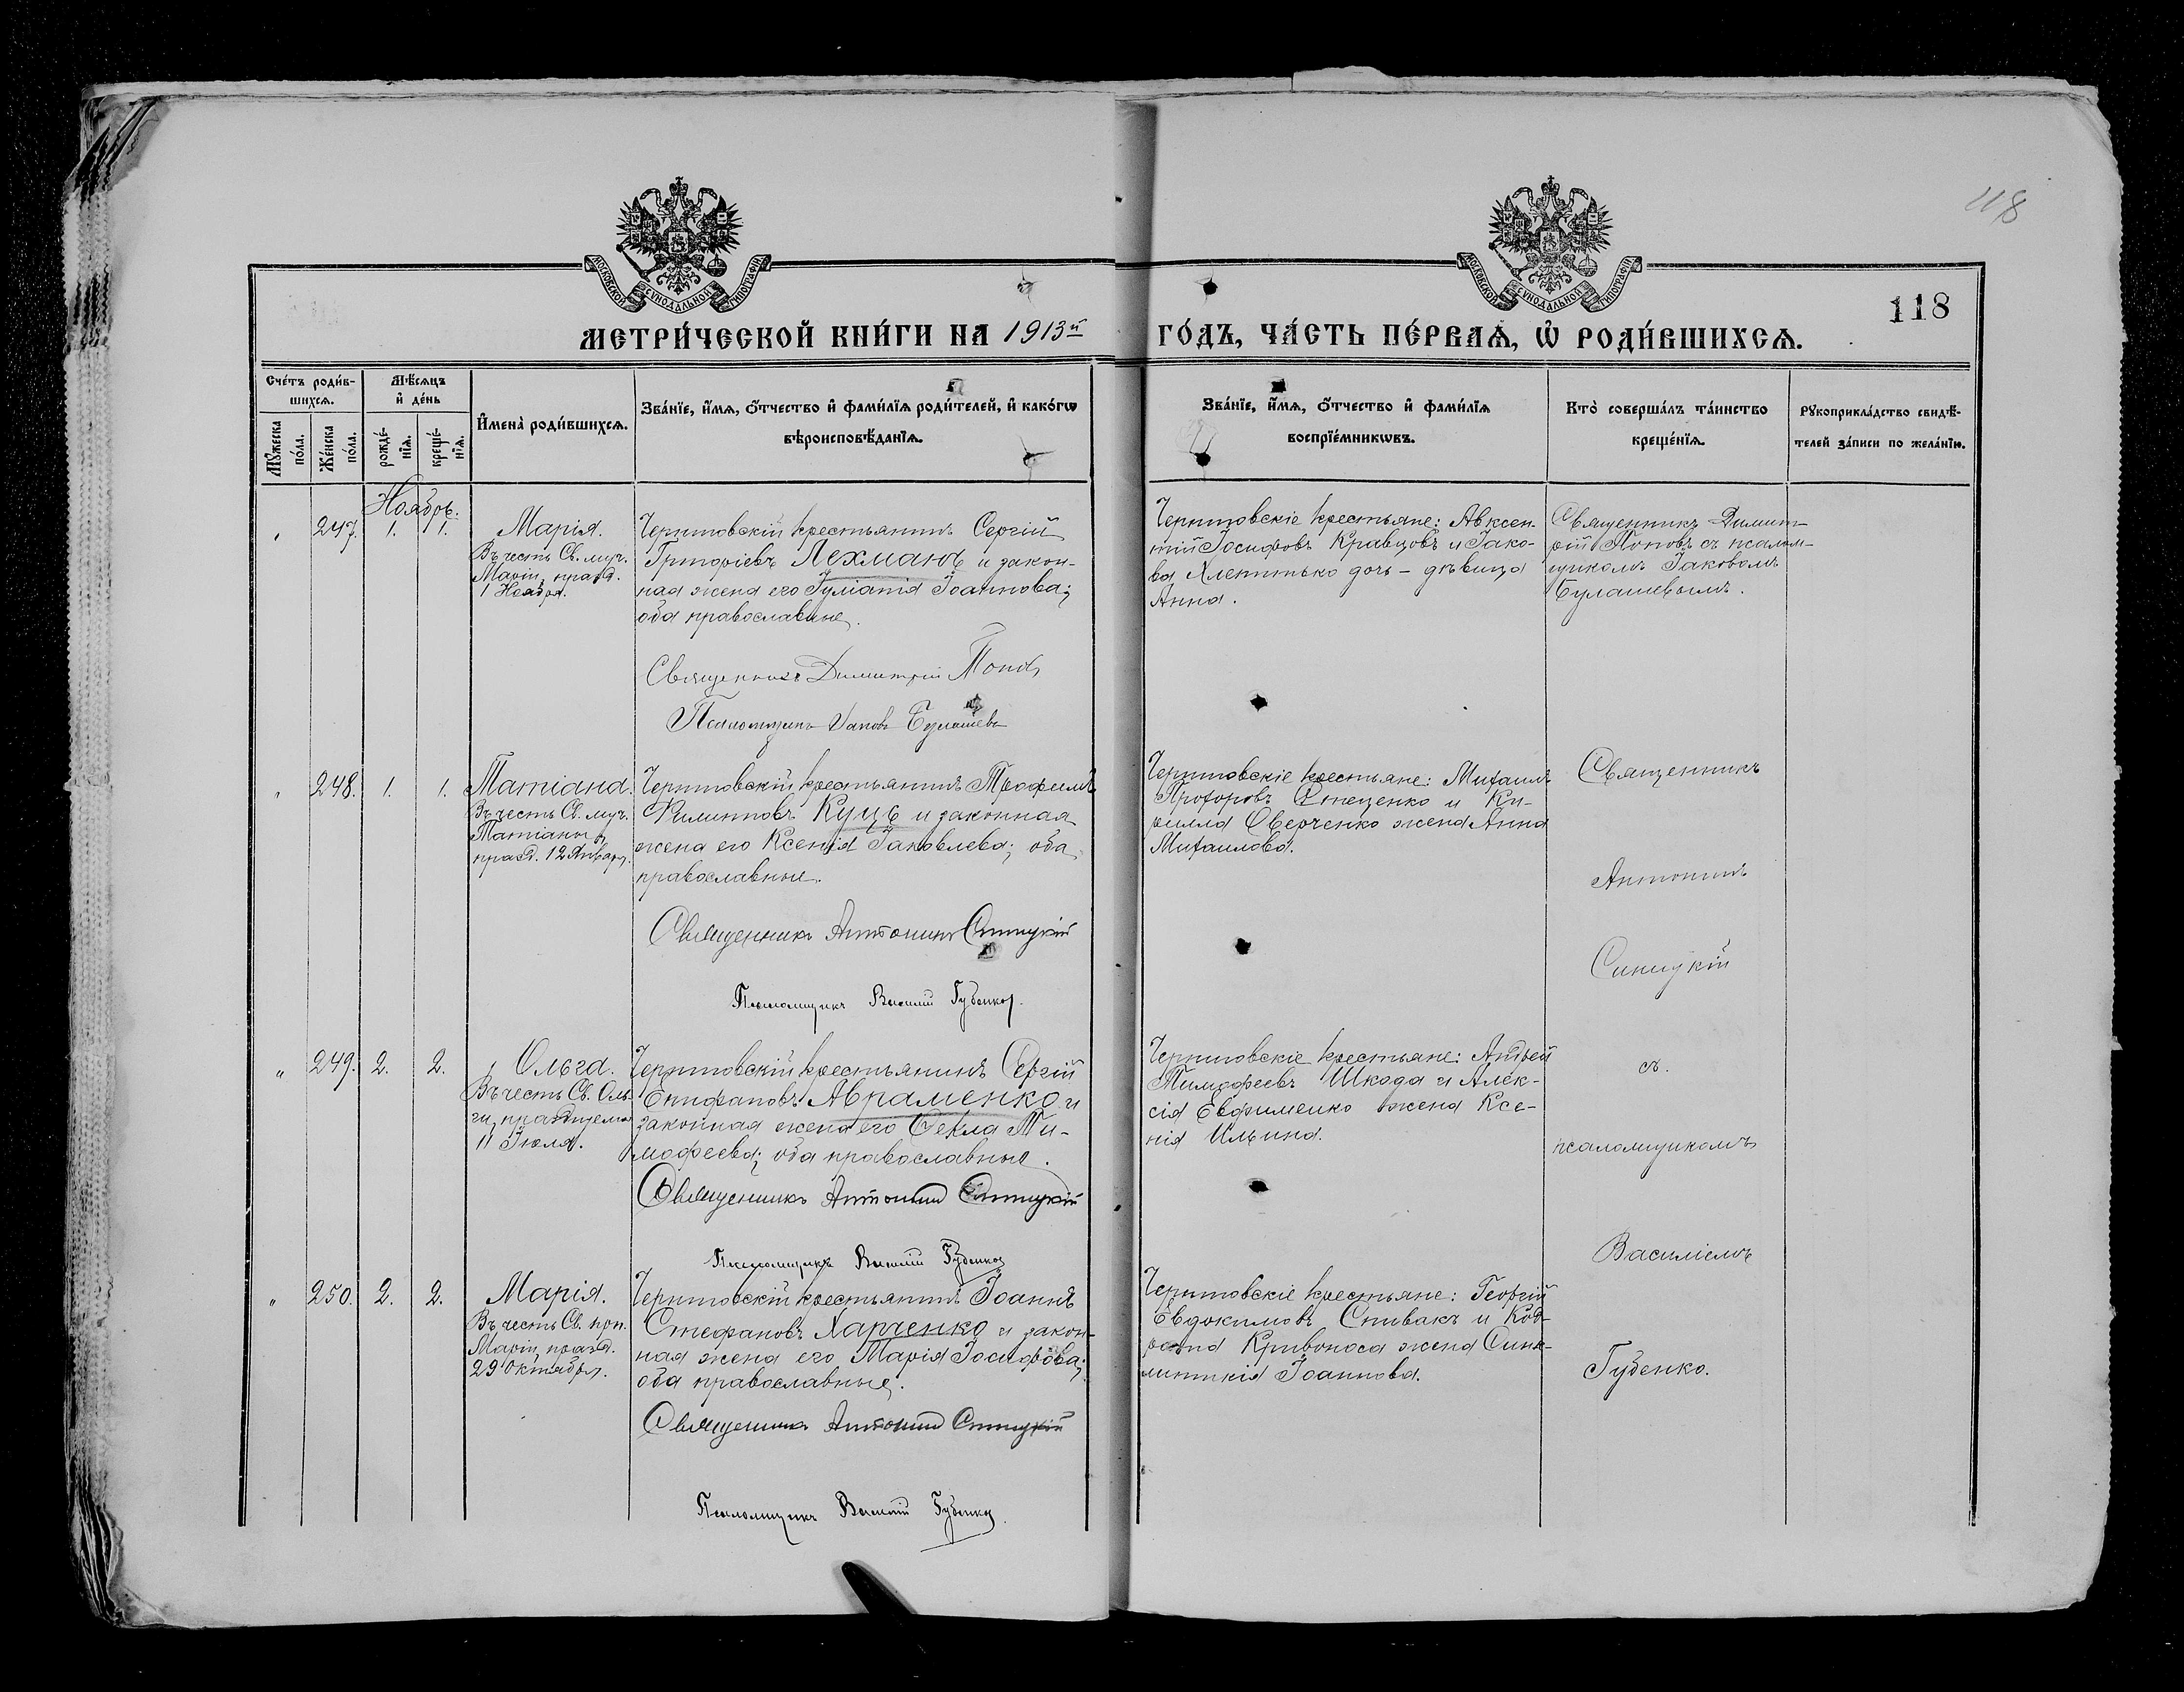 118
МОСКОВСКОЙ СѴНОДАЛЬНОЙ ТИПОГРАФІИ
МОСКОВСКОЙ СѴНОДАЛЬНОЙ ТИПОГРАФІИ
118
МЕТРИ́ЧЕСКОЙ КНИ́ГИ НА 1913й ГО́ДЪ, ЧА́СТЬ ПЕ́РВАѦ, Ѽ РОДИ́ВШИХСѦ.
Сче́тъ роди́в-
шихсѧ.
Мѣ́сѧцъ
и҆ де́нь
Мꙋ́жеска
по́ла.
Же́нска
по́ла.
рожде́-
нїѧ.
креще́-
нїѧ.
И҆мена̀ роди́вшихсѧ.
Зва́нїе, и҆́мѧ, ѻ҆́тчество и҆ фами́лїѧ роди́телей, и҆ како́гѡ
вѣроисповѣ́данїѧ.
Зва́нїе, и҆́мѧ, ѻ҆́тчество и҆ фами́лїѧ
воспрїе́мникѡвъ.
Кто̀ соверша́лъ та́инство
креще́нїѧ.
Рꙋкоприкла́дство свидѣ́-
телей за́писи по жела́нїю.
Ноябрь.
" 247. 1. 1.
Марія.
Въ честь Св. муч.
Маріи, празд.
1 Ноября.
крестьянинъ Сергій
Григоріевъ Лехманъ и закон-
ная жена его Іуліанія Іоаннова;
оба православные.
Священникъ Димитрій Поповъ
Псаломщикъ Іаковъ Булашевъ
крестьяне: Авксен-
тій Іосифовъ Кравцовъ и Іако-
ва дочь - дѣвица
Анна.
Священникъ Димит-
рій Поповъ съ псалом-
щикомъ Іаковомъ
Булашевымъ.
" 248. 1. 1.
Татіана.
Въ честь Св. муч.
Татіаны,
празд. 12 Января.
крестьянинъ Трофимъ
Филипповъ Куцъ и законная
жена его Ксенія Іаковлева; оба
православные.
Священникъ Антонинъ Синицкій
Псаломщикъ Василій Губенко.
крестьяне: Михаилъ
Прохоровъ Стеценко и Ки-
рилла Оверченко жена Анна
Михаилова.
Священникъ
Антонинъ
Синицкій
съ.
псаломщикомъ
Василіемъ
Губенко.
" 249. 2. 2.
Ольга.
Въ честь Св. Оль-
ги, празднуемой
11 Іюля.
крестьянинъ Сергій
Епифановъ Авраменко и
законная жена его Ѳекла Ти-
мофеева; оба православные.
Священникъ Антонинъ Синицкій
Псаломщикъ Василій Губенко
крестьяне: Андрей
Тимофеевъ Шкода и Алек-
сія Евфименко жена Ксе-
нія Ильина.
" 250. 2. 2.
Марія.
Въ честь Св. прп.
Маріи, празд.
29 Октября.
крестьянинъ Іоаннъ
Стефановъ Харченко и закон-
ная жена его Марія Іосифова;
оба православные.
Священникъ Антонинъ Синицкій
Псаломщикъ Василій Губенко.
крестьяне: Георгій
Евдокимовъ Спивакъ и Код-
рата Кривоноса жена Синк-
литикія Іоаннова.